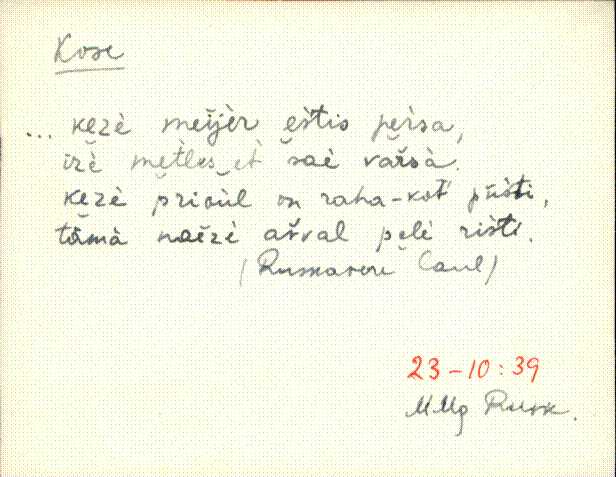 Kose
... kezè meijèr eštis pèrsa,
irè metles et šaè varsà.
kezè prioùl on raha-kot́ pūšti,
tämà naèzè ašval pelè rišti.
(Rusmavere Caul)
23-10:39
MMg Rusk.